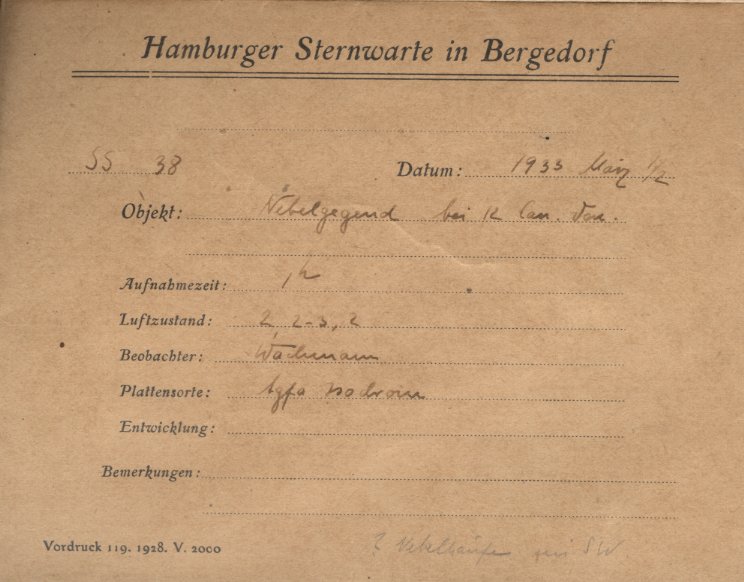 Hamburger Sternwarte in Bergedorf
SS 38 Datum: 1933 März 1/2
Objekt: Nebelgegend bei 12 Can. Ven.
Aufnahmezeit: 1h
Luftzustand: 2, 2-3, 2
Beobachter: Wachmann
Plattensorte: Agfa Isochrom
Entwicklung:
Bemerkungen:
Vordruck 119. 1928. V. 2000
? Nebelhaufen im SW